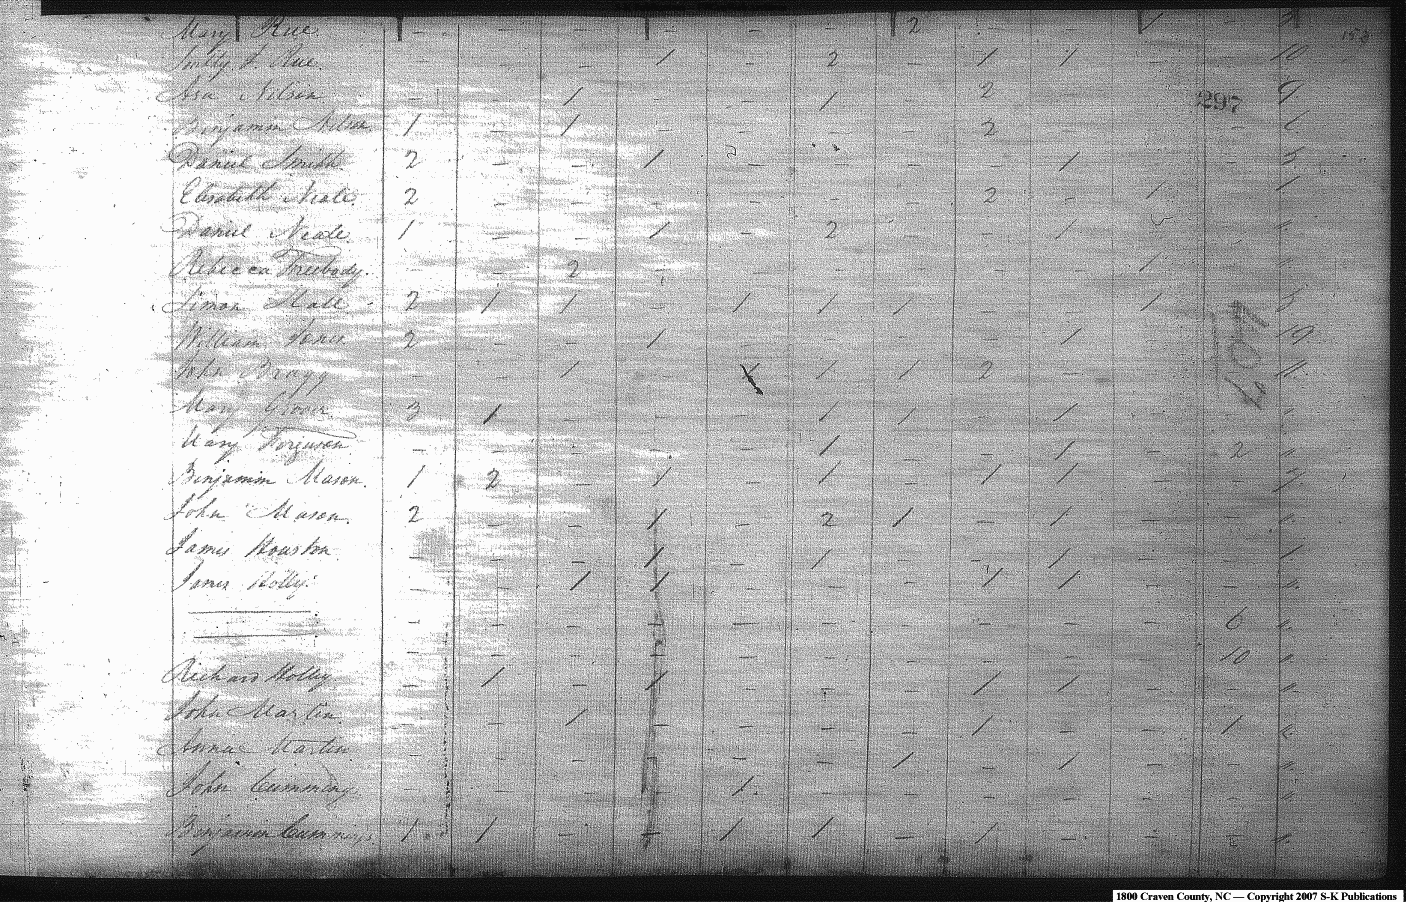 Mary Rue. - - - - - 2 - - / - 5
Rue. - - - / - 2 - / / - 10
Asa Nelson - - / - - / - 2 - -
297
Benjamin Nelson 1 - / - - - - 2 - - -
Daniel Smith. 2 - - / - - - - / - - 5
Elisabeth Neale. 2 - - - - - - 2 - / - /
Daniel Neale. 1 - - / - 2 - - / - -
Rebecca Freebody. - - 2 - - - - - - / - -
Simon Hall 2 / / - / / / - - / - 5
William Jones 2 - - / - - - - / - -
John Bragg - - / - X / / 2 - - -
Mary Grover 3 / - - - / / - / - - -
Mary Ferguson - - - - - / - - / - 2 -
Benjamin Mason. 1 2 - / - / - / / - -
John Mason. 2 - - / - 2 / - / - - -
James Houston - - - / - / - - / - - /
James Holly. - - / / - - - / / - - -
- - - - - - - - - - 6 -
- - - - - - - - - - 10 -
Richard Holly - / - / - - - / / - - -
John Martin. - - / - - - - / - - / -
Anna Martin - - - - - - / - / - - -
John Cummings. - - - - / - - - - - - -
Benjamin Cummings. 1 / - - / / - / - - - -
1800 Craven County, NC — Copyright 2007 S-K Publications